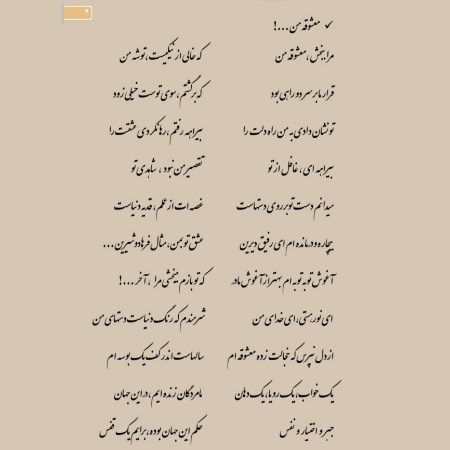 ✓ معشوقه من...!
مرا ببخش ، معشوقه من که خالی از نیکیست ، توشه من
قرار ما بر سر دو راهی بود که برگشتم ، سوی توست خیلی زود
تو نشان دادی به من راه دلت را بیراهه رفتم ، رها نکردی عشقت را
بیراهه ای ، غافل از تو تقصیر من نبود ، شاهدی تو
میدانم دست تو بر روی دستهاست غصه ات از علم ، قد یه دنیاست
بیچاره و درمانده ام ای رفیق دیرین عشق تو بمن ، مثال فرهاد و شیرین...
آغوش توبه توبه ام بهتر از آغوش مادر که تو بازم میبخشی مرا ، آخر...!
ای نور هستی ، ای خدای من شرمندم که رنگ دنیاست دستهای من
از دل نپرس که خجالت زده معشوقه ام سالهاست اندر کف یک بوسه ام
یک خواب ، یک رویا ، یک دهان ما مردگان زنده ایم ، در این جهان
جبر و اختیار و نفس حکم این جهان بوده ، برایم یک قفس